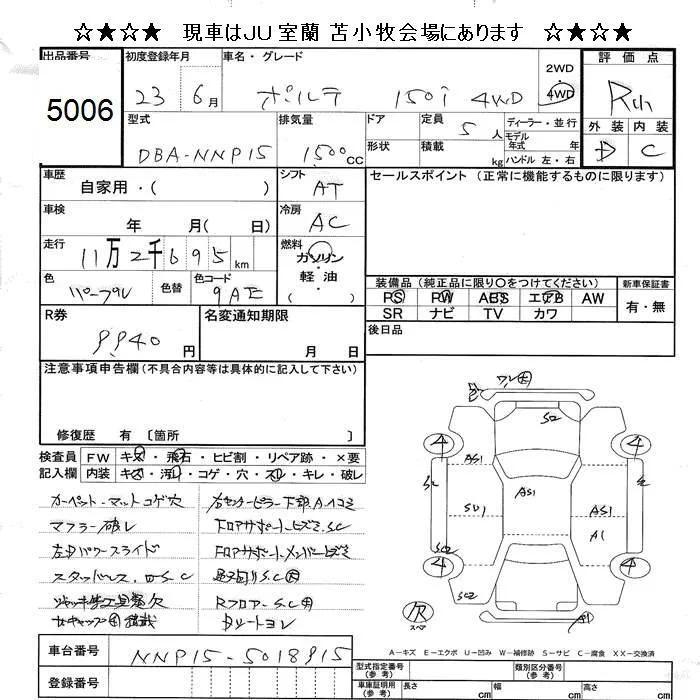 ☆★☆★ 現車はJU室蘭 苫小牧会場にあります ☆★☆★
出品番号 5006
初度登録年月 23 6月
車名・グレード ポルテ 150i 4WD
2WD 4WD
評価点 R
外装 内装
D C
型式 DBA-NNP15
排気量 1500cc
ドア 形状
定員 5人
積載 kg
ディーラー・並行
モデル年式 年
ハンドル 左・右
車歴 自家用・( )
シフト AT
セールスポイント (正常に機能するものに限ります)
車検 年 月( 日)
冷房 AC
走行 11万2千695km
燃料 ガソリン・軽油
色 パープル 色替
色コード 9AE
装備品 (純正品に限り〇をつけてください)
PS PW ABS エアB AW
SR ナビ TV カワ
新車保証書 有・無
R券 9,940円
名変通知期限 月 日
後日品
注意事項申告欄 (不具合内容等は具体的に記入して下さい)
修復歴 有 〔箇所 〕
検査員記入欄
FW キズ・飛石・ヒビ割・リペア跡・×要
内装 キズ・汚れ・コゲ・穴・スレ・キレ・破レ
カーペット・マットコゲ穴
マフラー破レ
左中パワースライド
スタッドレス
右センターピラー下部
コアサポートヒズミ、SC
コアサポート、メンバーヒズミ
Rフロアー、SC
ワレ
S2
4 4
AS1
AS1
AS1
A1
SC2
4 4
SC2
AS1
欠
スペア
A－キズ E－エクボ U－凹み W－補修跡 S－サビ C－腐食 XX－交換済
車台番号 NNP15-5018915
登録番号
型式指定番号 (参考)
類別区分番号 (参考)
車庫証明用 (参考) 長さ cm 幅 cm 高さ cm